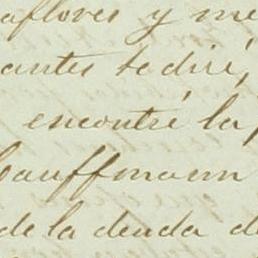 aflores y me
antes te diré,
encontré la p
Cauffmann
de la deuda de